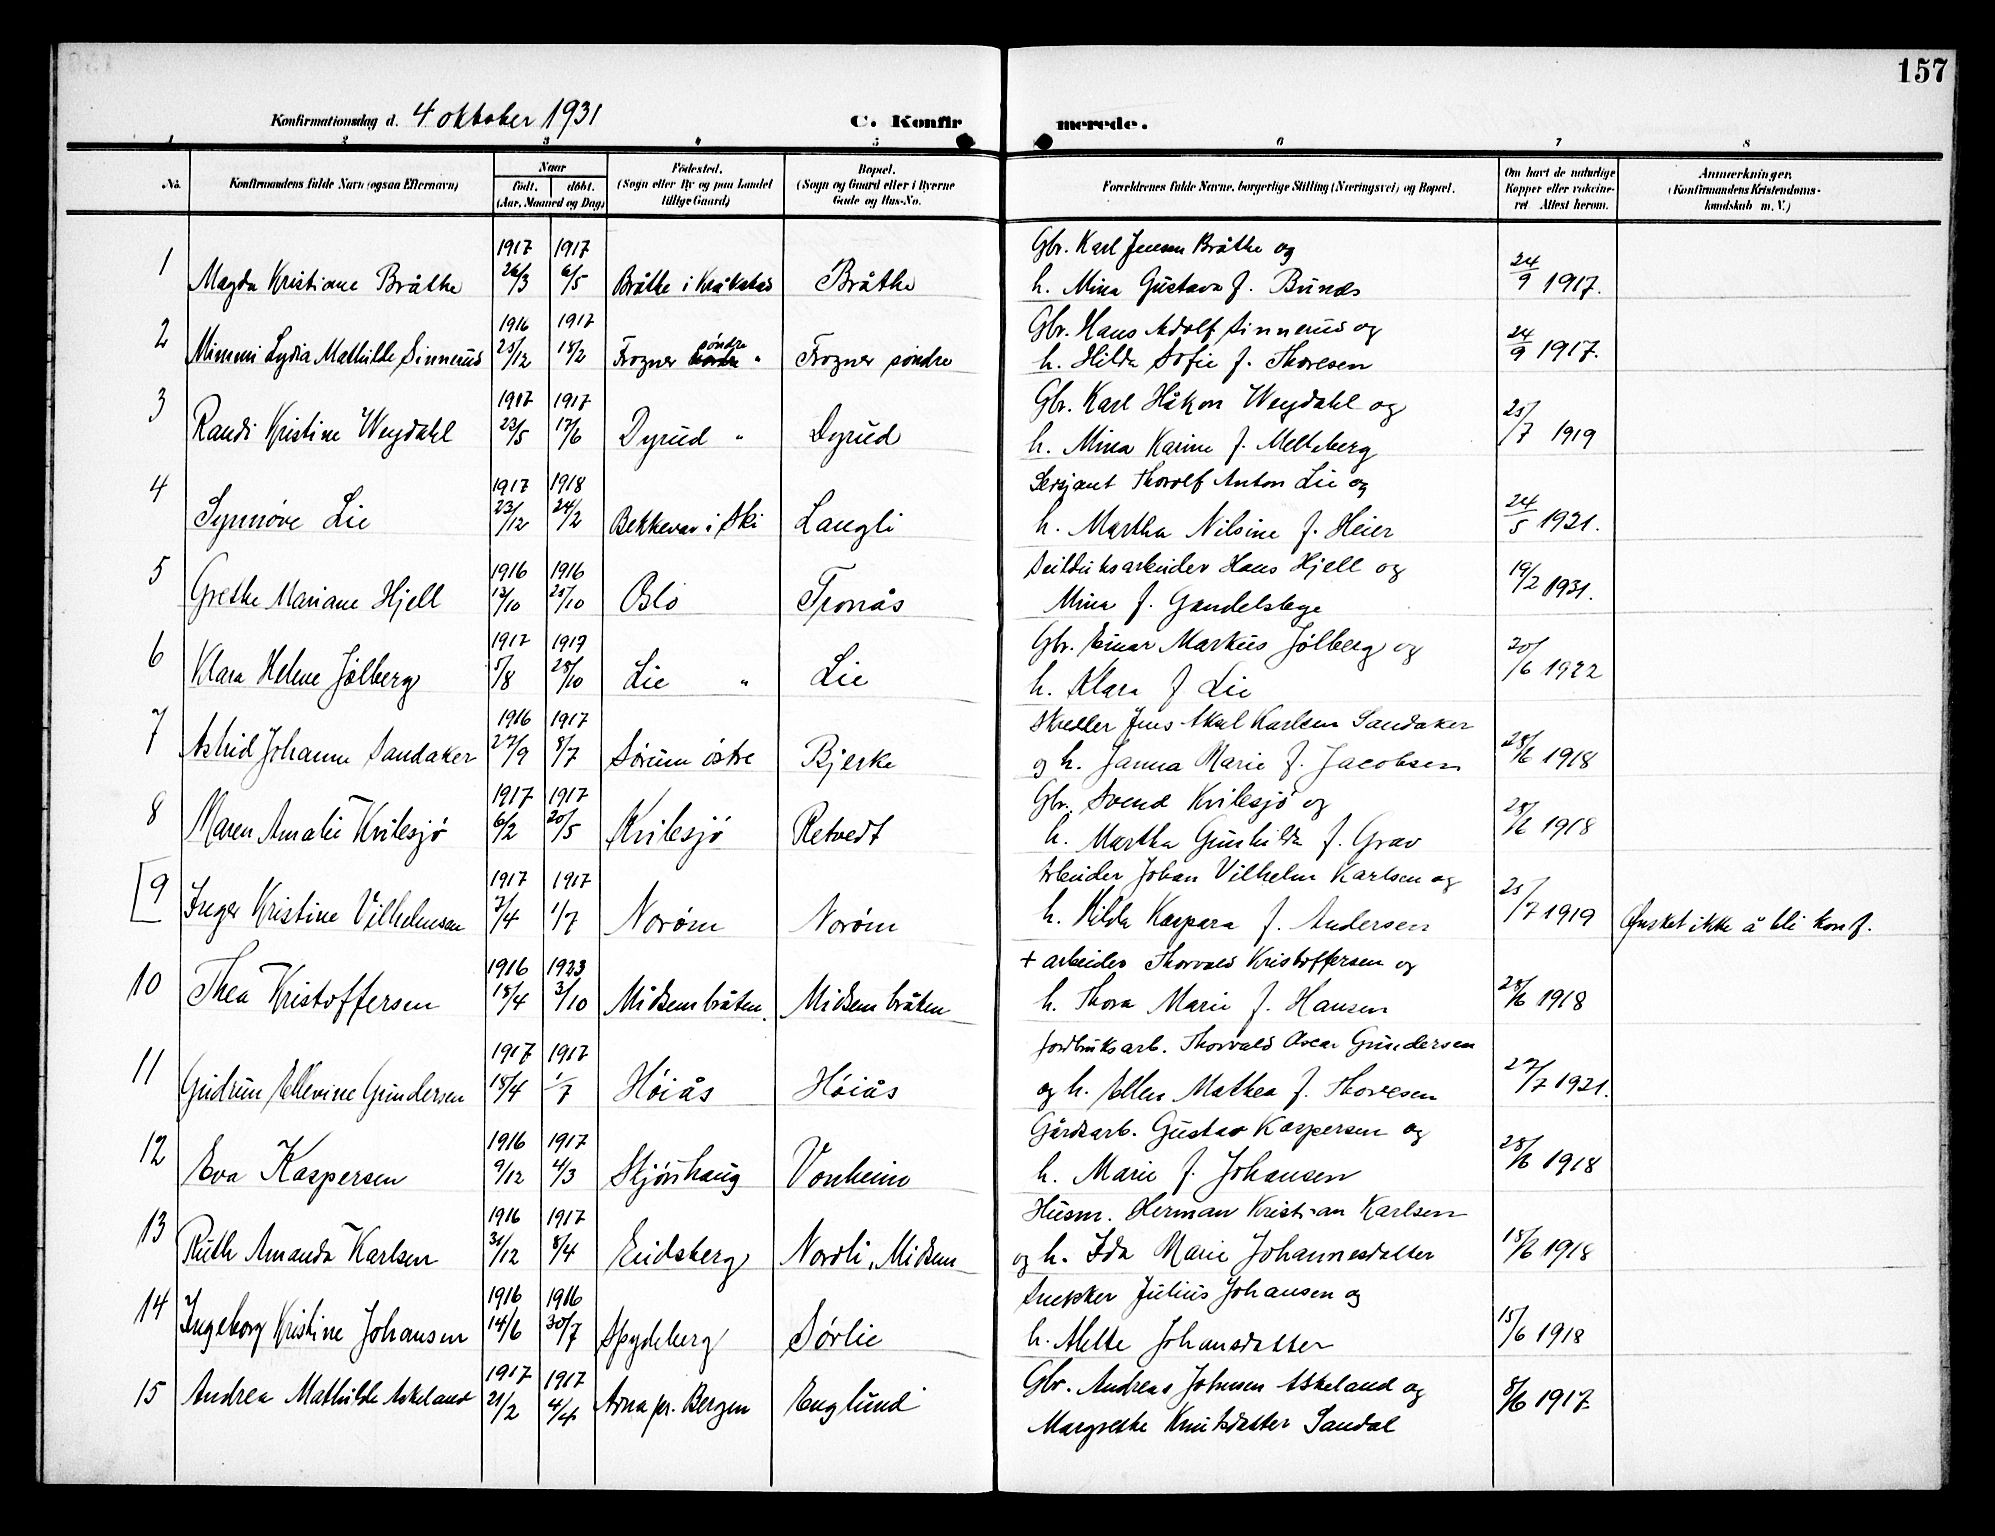 157
Konfirmationsdag d. 4 oktober 1931
C. Konfirmerede.
1 2 3 4 5 6 7 8
No. Konfirmandens fulde Navn (ogsaa Efternavn) Naar født. døbt. (Aar, Maaned og Dag) Fødested. (Sogn eller By og paa Landet tillige Gaard) Bopæl. (Sogn og Gaard eller i Byerne Gade og Hus-No. Forældrenes fulde Navne, borgerlige Stilling (Næringsvei) og Bopæl. Om havt de naturlige Kopper eller vakcineret Attest herom. Anmærkninger. (Konfirmandens Kristendomskundskab m. V.)
1 Magda Kristiane Bråthe 1917 26/3 1917 6/5 Bråthe i Kråkstad Bråthe Gbr. Karl Jensen Bråthe og
h. Mina Gustava f. Bunæs 24/9 1917.
2 Mimmi Lydia Mathilde Sinnerud 1916 25/12 1917 18/2 Frogner søndre " Frogner søndre Gbr. Hans Adolf Sinnerud og
h. Hilda Sofie f. Thoresen 24/9 1917.
3 Randi Kristine Weydahl 1917 23/5 1917 17/6 Dyrud " Dyrud Gbr. Karl Håkon Weydahl og
h. Mina Karine f. Melleberg 25/7 1919
4 Synnøve Lie 1917 23/12 1918 24/2 Bekkevar i Ski Langli Sersjant Thorolf Anton Lie og
h. Martha Nilsine f. Heier 24/5 1921.
5 Grethe Mariane Hjell 1916 13/10 1916 25/10 Oslo Tronås Hans Hjell og
Mina f. 19/2 1931.
6 Klara Helene Jølberg 1917 5/8 1917 28/10 Lie " Lie Gbr. Einar Markus Jølberg og
h. Klara f Lie 20/6 1922
7 Astrid Johanne Sandaker 1916 27/9 1917 8/7 Sørum østre Bjerke Skredder Jens Aksel Karlsen Sandaker
og h. Janna Marie f. Jacobsen 28/6 1918
8 Maren Amalie Kvilesjø 1917 6/2 1917 20/5 Kvilesjø Retvedt Gbr. Svend Kvilesjø og
h. Martha Gunhilda f. Grav 28/6 1918
[9 Inger Kristine Vilhelmsen 1917 7/4 1917 1/7 Norøm Norøm Arbeider Johan Vilhelm Karlsen og
h. Hilda Kaspara f. Andersen 25/7 1919 Ønsket ikke å bli konf.
10 Thea Kristoffersen 1916 18/4 1923 3/10 Midsembråten. Midsembråten + arbeider Thorvald Kristoffersen og
h. Thora Marie f. Hansen 28/6 1918
11 Gudrun Ellevine Gundersen 1917 18/4 1917 1/7 Høiås Høiås Jordbruksarb. Thorvald Oscar Gundersen
og h. Ellen Mathea f. Thoresen 27/7 1921.
12 Eva Kaspersen 1916 9/12 1917 4/3 Skjønhaug Vonheim Gårdsarb. Gustav Kaspersen og
h. Marie f. Johansen 28/6 1918
13 Ruth Amanda Karlsen 1916 31/12 1917 8/4 Eidsberg Nordli, Midsem Husm. Herman Kristian Karlsen
og h. Ida Marie Johannesdatter 18/6 1918
14 Ingeborg Kristine Johansen 1916 14/6 1916 30/7 Spydeberg Sørlie Snekker Julius Johansen og
h. Alette Johansdatter 15/6 1918
15 Andrea Mathilde Askeland 1917 21/2 1917 4/4 Arna pr. Bergen Englund Gbr. Andreas Johnsen Askeland og
Margrethe Knutsdatter Sandal 8/6 1917.